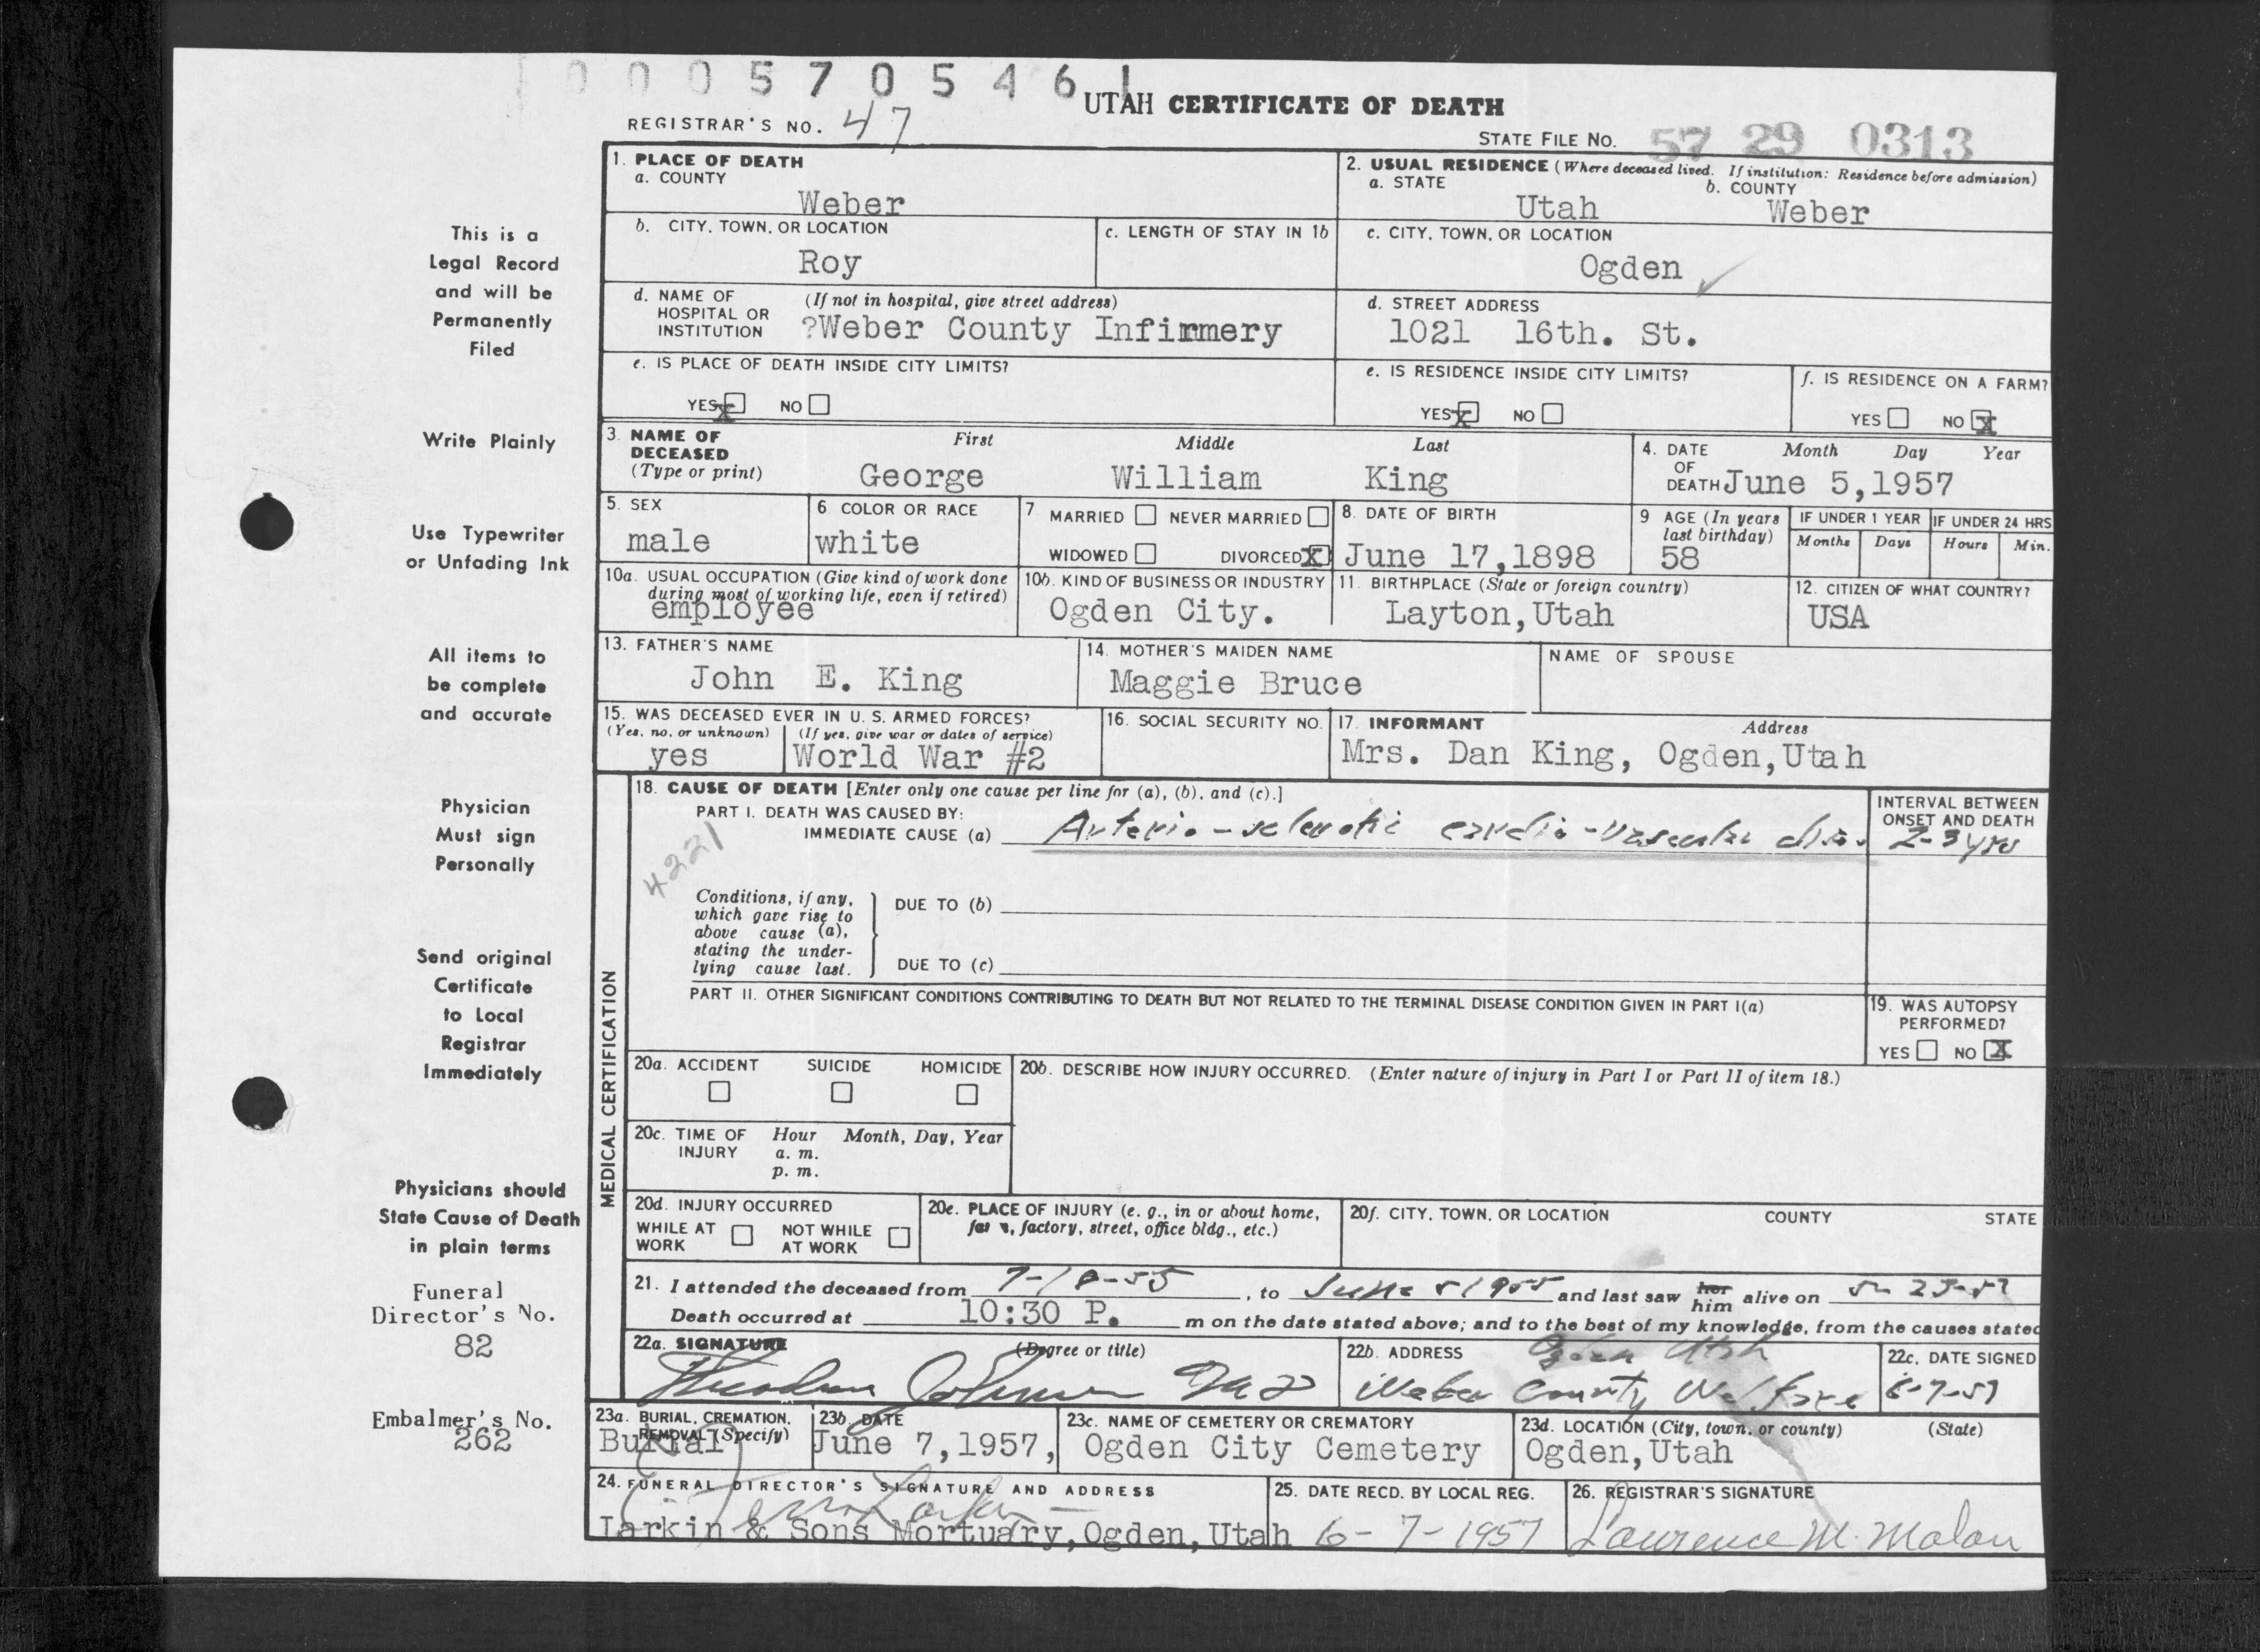 000570546
UTAH CERTIFICATE OF DEATH
REGISTRAR'S NO. 47
STATE FILE NO. 57 29 0313
This is a
Legal Record
and will be
Permanently
Filed
Write Plainly
Use Typewriter
or Unfading Ink
All items to
be complete
and accurate
Physician
Must sign
Personally
Send original
Certificate
to Local
Registrar
Immediately
Physicians should
State Cause of Death
in plain terms
Funeral
Director's No.
82
Embalmer's No.
262
1. PLACE OF DEATH
a. COUNTY
Weber
2. USUAL RESIDENCE (Where deceased lived. If institution: Residence before admission)
a. STATE b. COUNTY
Utah Weber
b. CITY, TOWN, OR LOCATION
Roy
c. LENGTH OF STAY IN 1b
c. CITY, TOWN, OR LOCATION
Ogden
d. NAME OF HOSPITAL OR INSTITUTION (If not in hospital, give street address)
?Weber County Infirmery
d. STREET ADDRESS
1021 16th. St.
e. IS PLACE OF DEATH INSIDE CITY LIMITS?
YES X NO
e. IS RESIDENCE INSIDE CITY LIMITS?
YES X NO
f. IS RESIDENCE ON A FARM?
YES NO X
3. NAME OF DECEASED (Type or print)
First Middle Last
George William King
4. DATE OF DEATH Month Day Year
June 5,1957
5. SEX
male
6 COLOR OR RACE
white
7 MARRIED NEVER MARRIED
WIDOWED DIVORCED X
8. DATE OF BIRTH
June 17,1898
9 AGE (In years last birthday)
58
IF UNDER 1 YEAR IF UNDER 24 HRS
Months Days Hours Min.
10a. USUAL OCCUPATION (Give kind of work done during most of working life, even if retired)
employee
10b. KIND OF BUSINESS OR INDUSTRY
Ogden City.
11. BIRTHPLACE (State or foreign country)
Layton,Utah
12. CITIZEN OF WHAT COUNTRY?
USA
13. FATHER'S NAME
John E. King
14. MOTHER'S MAIDEN NAME
Maggie Bruce
NAME OF SPOUSE
15. WAS DECEASED EVER IN U. S. ARMED FORCES?
(Yes, no, or unknown) (If yes, give war or dates of service)
yes World War #2
16. SOCIAL SECURITY NO.
17. INFORMANT Address
Mrs. Dan King, Ogden,Utah
MEDICAL CERTIFICATION
18. CAUSE OF DEATH [Enter only one cause per line for (a), (b), and (c).]
PART I. DEATH WAS CAUSED BY:
IMMEDIATE CAUSE (a) Arterio-sclerotic cardio-vascular dis.
INTERVAL BETWEEN ONSET AND DEATH
2-3 yrs
4221
Conditions, if any, which gave rise to above cause (a), stating the underlying cause last.
DUE TO (b)
DUE TO (c)
PART II. OTHER SIGNIFICANT CONDITIONS CONTRIBUTING TO DEATH BUT NOT RELATED TO THE TERMINAL DISEASE CONDITION GIVEN IN PART I(a)
19. WAS AUTOPSY PERFORMED?
YES NO X
20a. ACCIDENT SUICIDE HOMICIDE
20b. DESCRIBE HOW INJURY OCCURRED. (Enter nature of injury in Part I or Part II of item 18.)
20c. TIME OF INJURY Hour Month, Day, Year
a. m.
p. m.
20d. INJURY OCCURRED
WHILE AT WORK NOT WHILE AT WORK
20e. PLACE OF INJURY (e. g., in or about home, farm, factory, street, office bldg., etc.)
20f. CITY, TOWN, OR LOCATION COUNTY STATE
21. I attended the deceased from 7-18-55, to June 5 1955 and last saw her him alive on 5-23-57
Death occurred at 10:30 P. m on the date stated above; and to the best of my knowledge, from the causes stated
22a. SIGNATURE (Degree or title)
Theodore Johnson MD
22b. ADDRESS
Ogden Utah
Weber County Welfare
22c. DATE SIGNED
6-7-57
23a. BURIAL, CREMATION, REMOVAL (Specify)
Burial
23b. DATE
June 7,1957,
23c. NAME OF CEMETERY OR CREMATORY
Ogden City Cemetery
23d. LOCATION (City, town, or county) (State)
Ogden,Utah
24. FUNERAL DIRECTOR'S SIGNATURE AND ADDRESS
Larkin & Sons Mortuary,Ogden,Utah
25. DATE RECD. BY LOCAL REG.
6-7-1957
26. REGISTRAR'S SIGNATURE
Lawrence M. Malan